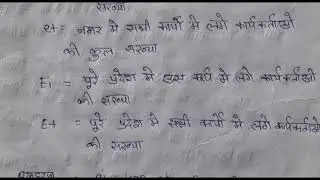 संख्या
et = नगर मे सभी कार्यो मे लगे कार्यकर्ताओ
की कुल संख्या
Ei = पूरे प्रदेश मे कार्य मे लगे कार्यकर्ताओ
की संख्या
Et = पूरे प्रदेश मे सभी कार्यो मे लगे कार्यकर्ताओ
की संख्या